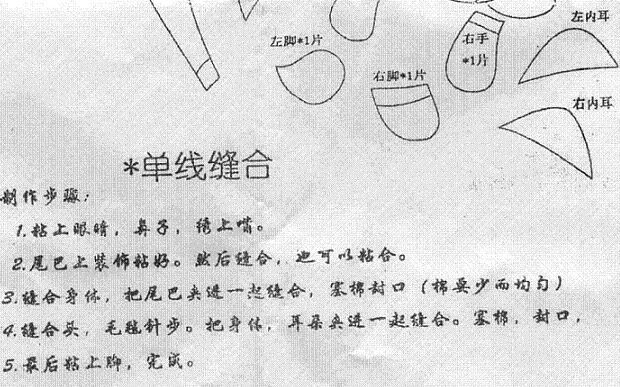 左内耳
左脚*1片
右手
*1片
右脚*1片
右内耳
*单线缝合
制作步骤：
1.粘上眼睛，鼻子，绣上嘴。
2.尾巴上装饰粘好。然后缝合，也可以粘合。
3.缝合身体，把尾巴夹进一起缝合，塞棉封口（棉要少而均匀）
4.缝合头，毛毯针步。把身体，耳朵夹进一起缝合。塞棉，封口，
5.最后粘上脚，完成。